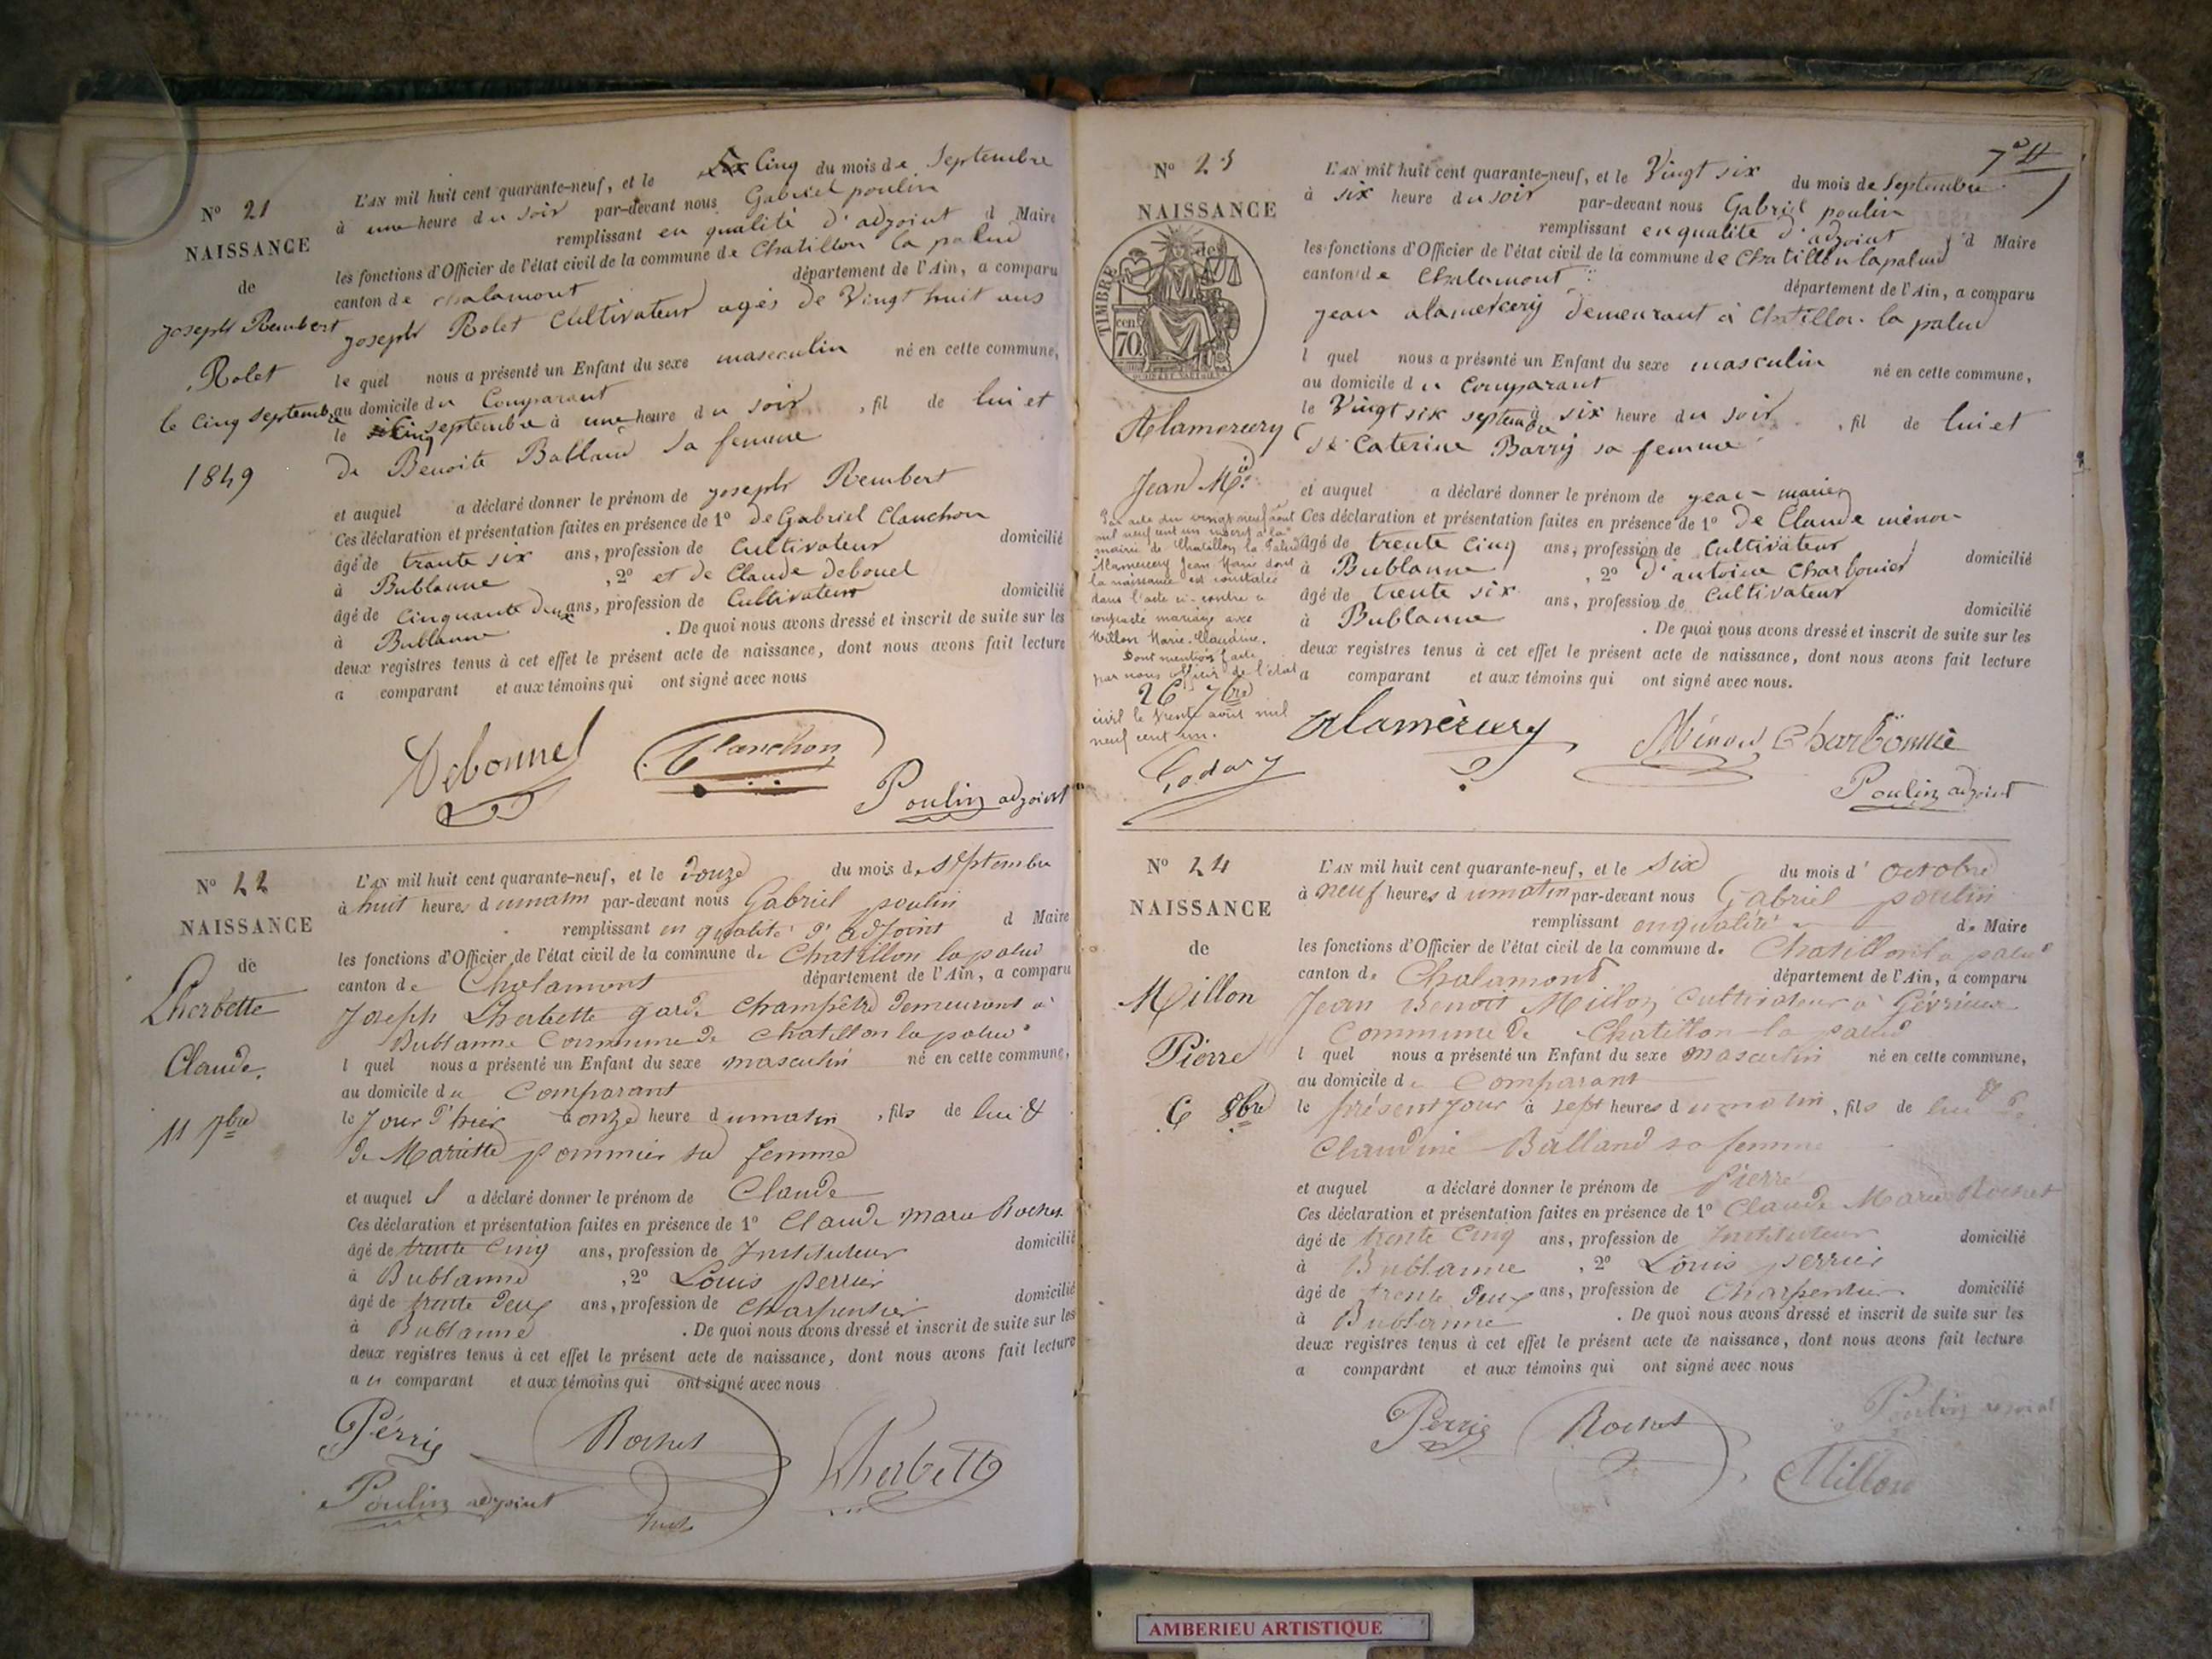 N° 21
NAISSANCE
de
Joseph Rembert
Rolet
le cinq septembre
1849
L'AN mil huit cent quarante-neuf, et le cinq du mois de Septembre
à une heure du soir par-devant nous Gabriel poulin
remplissant en qualité d'adjoint d Maire
les fonctions d'Officier de l'état civil de la commune de Chatillon la palud
canton de chalamont département de l'Ain, a comparu
joseph Rolet Cultivateur agés de Vingt huit ans
le quel nous a présenté un Enfant du sexe masculin né en cette commune,
au domicile du Comparant
le cinq septembre à une heure du soir, fil de lui et
de Benoite Balland sa femme
et auquel a déclaré donner le prénom de joseph Rembert
Ces déclaration et présentation faites en présence de 1° de Gabriel Clanchon
âgé de trante six ans, profession de Cultivateur domicilié
à Bublanne, 2° et de Claude debonel
âgé de Cinquante deux ans, profession de Cultivateur domicilié
à Bublanne. De quoi nous avons dressé et inscrit de suite sur les
deux registres tenus à cet effet le présent acte de naissance, dont nous avons fait lecture
a comparant et aux témoins qui ont signé avec nous
Debonnel Clanchon
Poulin adjoint
N° 22
NAISSANCE
de
Lherbette
Claude.
11 7bre
L'AN mil huit cent quarante-neuf, et le douze du mois de septembre
à huit heures du matin par-devant nous Gabriel poulin
remplissant en qualité d'adjoint d Maire
les fonctions d'Officier de l'état civil de la commune de Chatillon la palud
canton de Chalamont département de l'Ain, a comparu
Joseph Lherbette garde champêtre demeurant à
Bublanne Commune de chatillon la palud
l quel nous a présenté un Enfant du sexe masculin né en cette commune,
au domicile du Comparant
le Jour d'hier à onze heure du matin, fils de lui &
de Mariette pommier sa femme
et auquel il a déclaré donner le prénom de Claude
Ces déclaration et présentation faites en présence de 1° Claude Marie Rochet
âgé de trente Cinq ans, profession de Instituteur domicilié
à Bublanne, 2° Louis perrier
âgé de trente deux ans, profession de Charpentier domicilié
à Bublanne. De quoi nous avons dressé et inscrit de suite sur les
deux registres tenus à cet effet le présent acte de naissance, dont nous avons fait lecture
au comparant et aux témoins qui ont signé avec nous
Périe Rochet Lherbette
Poulin adjoint
N° 23
NAISSANCE
de
TIMBRE
cen
70
Alamercery
Jean Mie
Par acte du vingt neuf août
mil neuf cent un inscrit à la
mairie de Chatillon la Palud
Alamercery Jean Marie dont
la naissance est constatée
dans l'acte ci-contre a
contracté mariage avec
Millon Marie Claudine.
Dont mention faite
par nous officier de l'état
26 7bre
civil le trente août mil
neuf cent un.
Godary
L'AN mil huit cent quarante-neuf, et le Vingt six du mois de Septembre
à six heure du soir par-devant nous Gabriel poulin
remplissant en qualité d'adjoint d Maire
les fonctions d'Officier de l'état civil de la commune de Chatillon la palud
canton de Chalamont département de l'Ain, a comparu
jean alamercery demeurant à Chatillon la palud
l quel nous a présenté un Enfant du sexe masculin né en cette commune,
au domicile du Comparant
le Vingt six septembre à six heure du soir, fil de lui et
de Caterine Barry sa femme
et auquel a déclaré donner le prénom de jean marie
Ces déclaration et présentation faites en présence de 1° de Claude
âgé de trente cinq ans, profession de Cultivateur domicilié
à Bublanne, 2° d'antoine Charbonier
âgé de trente six ans, profession de Cultivateur domicilié
à Bublanne. De quoi nous avons dressé et inscrit de suite sur les
deux registres tenus à cet effet le présent acte de naissance, dont nous avons fait lecture
a comparant et aux témoins qui ont signé avec nous.
Alamercery Charbonnie
Poulin adjoint
N° 24
NAISSANCE
de
Millon
Pierre
6 8bre
L'AN mil huit cent quarante-neuf, et le six du mois d'octobre
à neuf heures du matin par-devant nous Gabriel poulin
remplissant en qualité de Maire
les fonctions d'Officier de l'état civil de la commune de Chatillon la palud
canton de Chalamont département de l'Ain, a comparu
Jean Benoit Millon Cultivateur à Gévrieux
Commune de Chatillon la palud
l quel nous a présenté un Enfant du sexe masculin né en cette commune,
au domicile du Comparant
le présent jour à sept heures du matin, fils de lui & de
Claudine Balland sa femme
et auquel a déclaré donner le prénom de Pierre
Ces déclaration et présentation faites en présence de 1° Claude Marie Rochet
âgé de trente Cinq ans, profession de Instituteur domicilié
à Bublanne, 2° Louis perrier
âgé de trente deux ans, profession de Charpentier domicilié
à Bublanne. De quoi nous avons dressé et inscrit de suite sur les
deux registres tenus à cet effet le présent acte de naissance, dont nous avons fait lecture
a comparant et aux témoins qui ont signé avec nous
Poulin adjoint
Perrie Rochet
Millon
AMBERIEU ARTISTIQUE